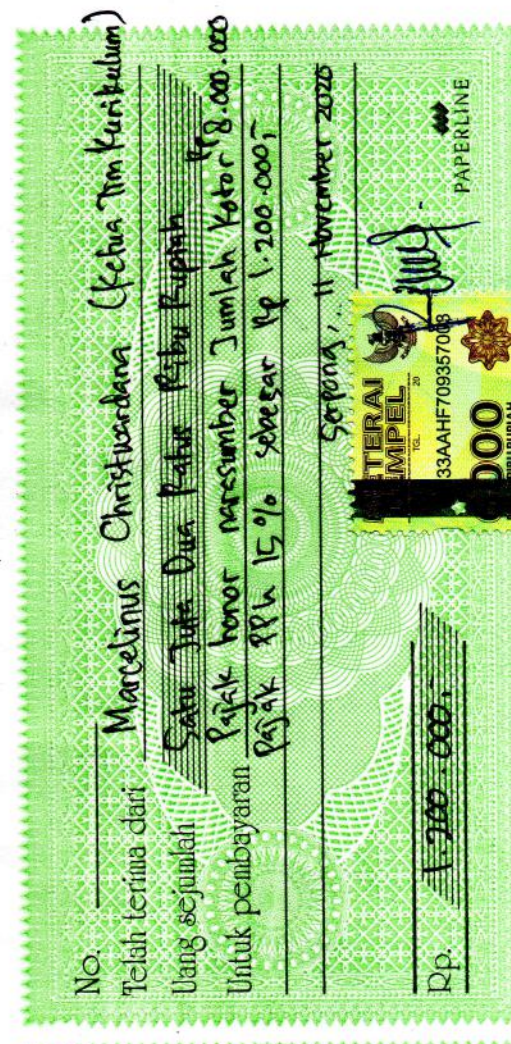 No.
Telah terima dari Marcelinus Christwardana (Ketua Tim Kurikulum)
Uang sejumlah Satu Juta Dua Ratus Ribu Rupiah
Untuk pembayaran Pajak honor narasumber Jumlah Kotor Rp 8.000.000
Pajak PPh 15% sebesar Rp 1.200.000,-
Serpong, 11 November 2020
Rp. 1.200.000,-
METERAI
TEMPEL
TGL. 20
33AAHF709357008
000
RIBU RUPIAH
PAPERLINE